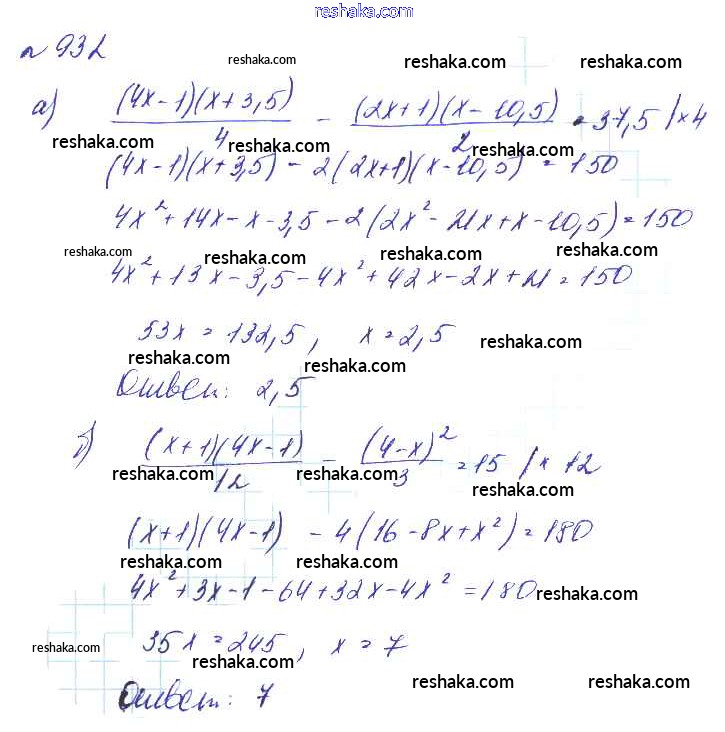 reshaka.com
№ 932
reshaka.com reshaka.com reshaka.com
а) (4x-1)(x+3,5)/4 - (2x+1)(x-10,5)/2 = 37,5 /×4
reshaka.com reshaka.com reshaka.com
(4x-1)(x+3,5) - 2(2x+1)(x-10,5) = 150
4x²+14x-x-3,5-2(2x²-21x+x-10,5)=150
reshaka.com reshaka.com reshaka.com
4x²+13x-3,5-4x²+42x-2x+21=150
53x = 132,5, x=2,5
reshaka.com reshaka.com reshaka.com
Ответ: 2,5
б) (x+1)(4x-1)/12 - (4-x)²/3 = 15 /×12
reshaka.com reshaka.com reshaka.com
(x+1)(4x-1) - 4(16-8x+x²)=180
reshaka.com reshaka.com reshaka.com
4x²+3x-1-64+32x-4x²=180
35x=245, x=7
reshaka.com reshaka.com reshaka.com
Ответ: 7
reshaka.com reshaka.com